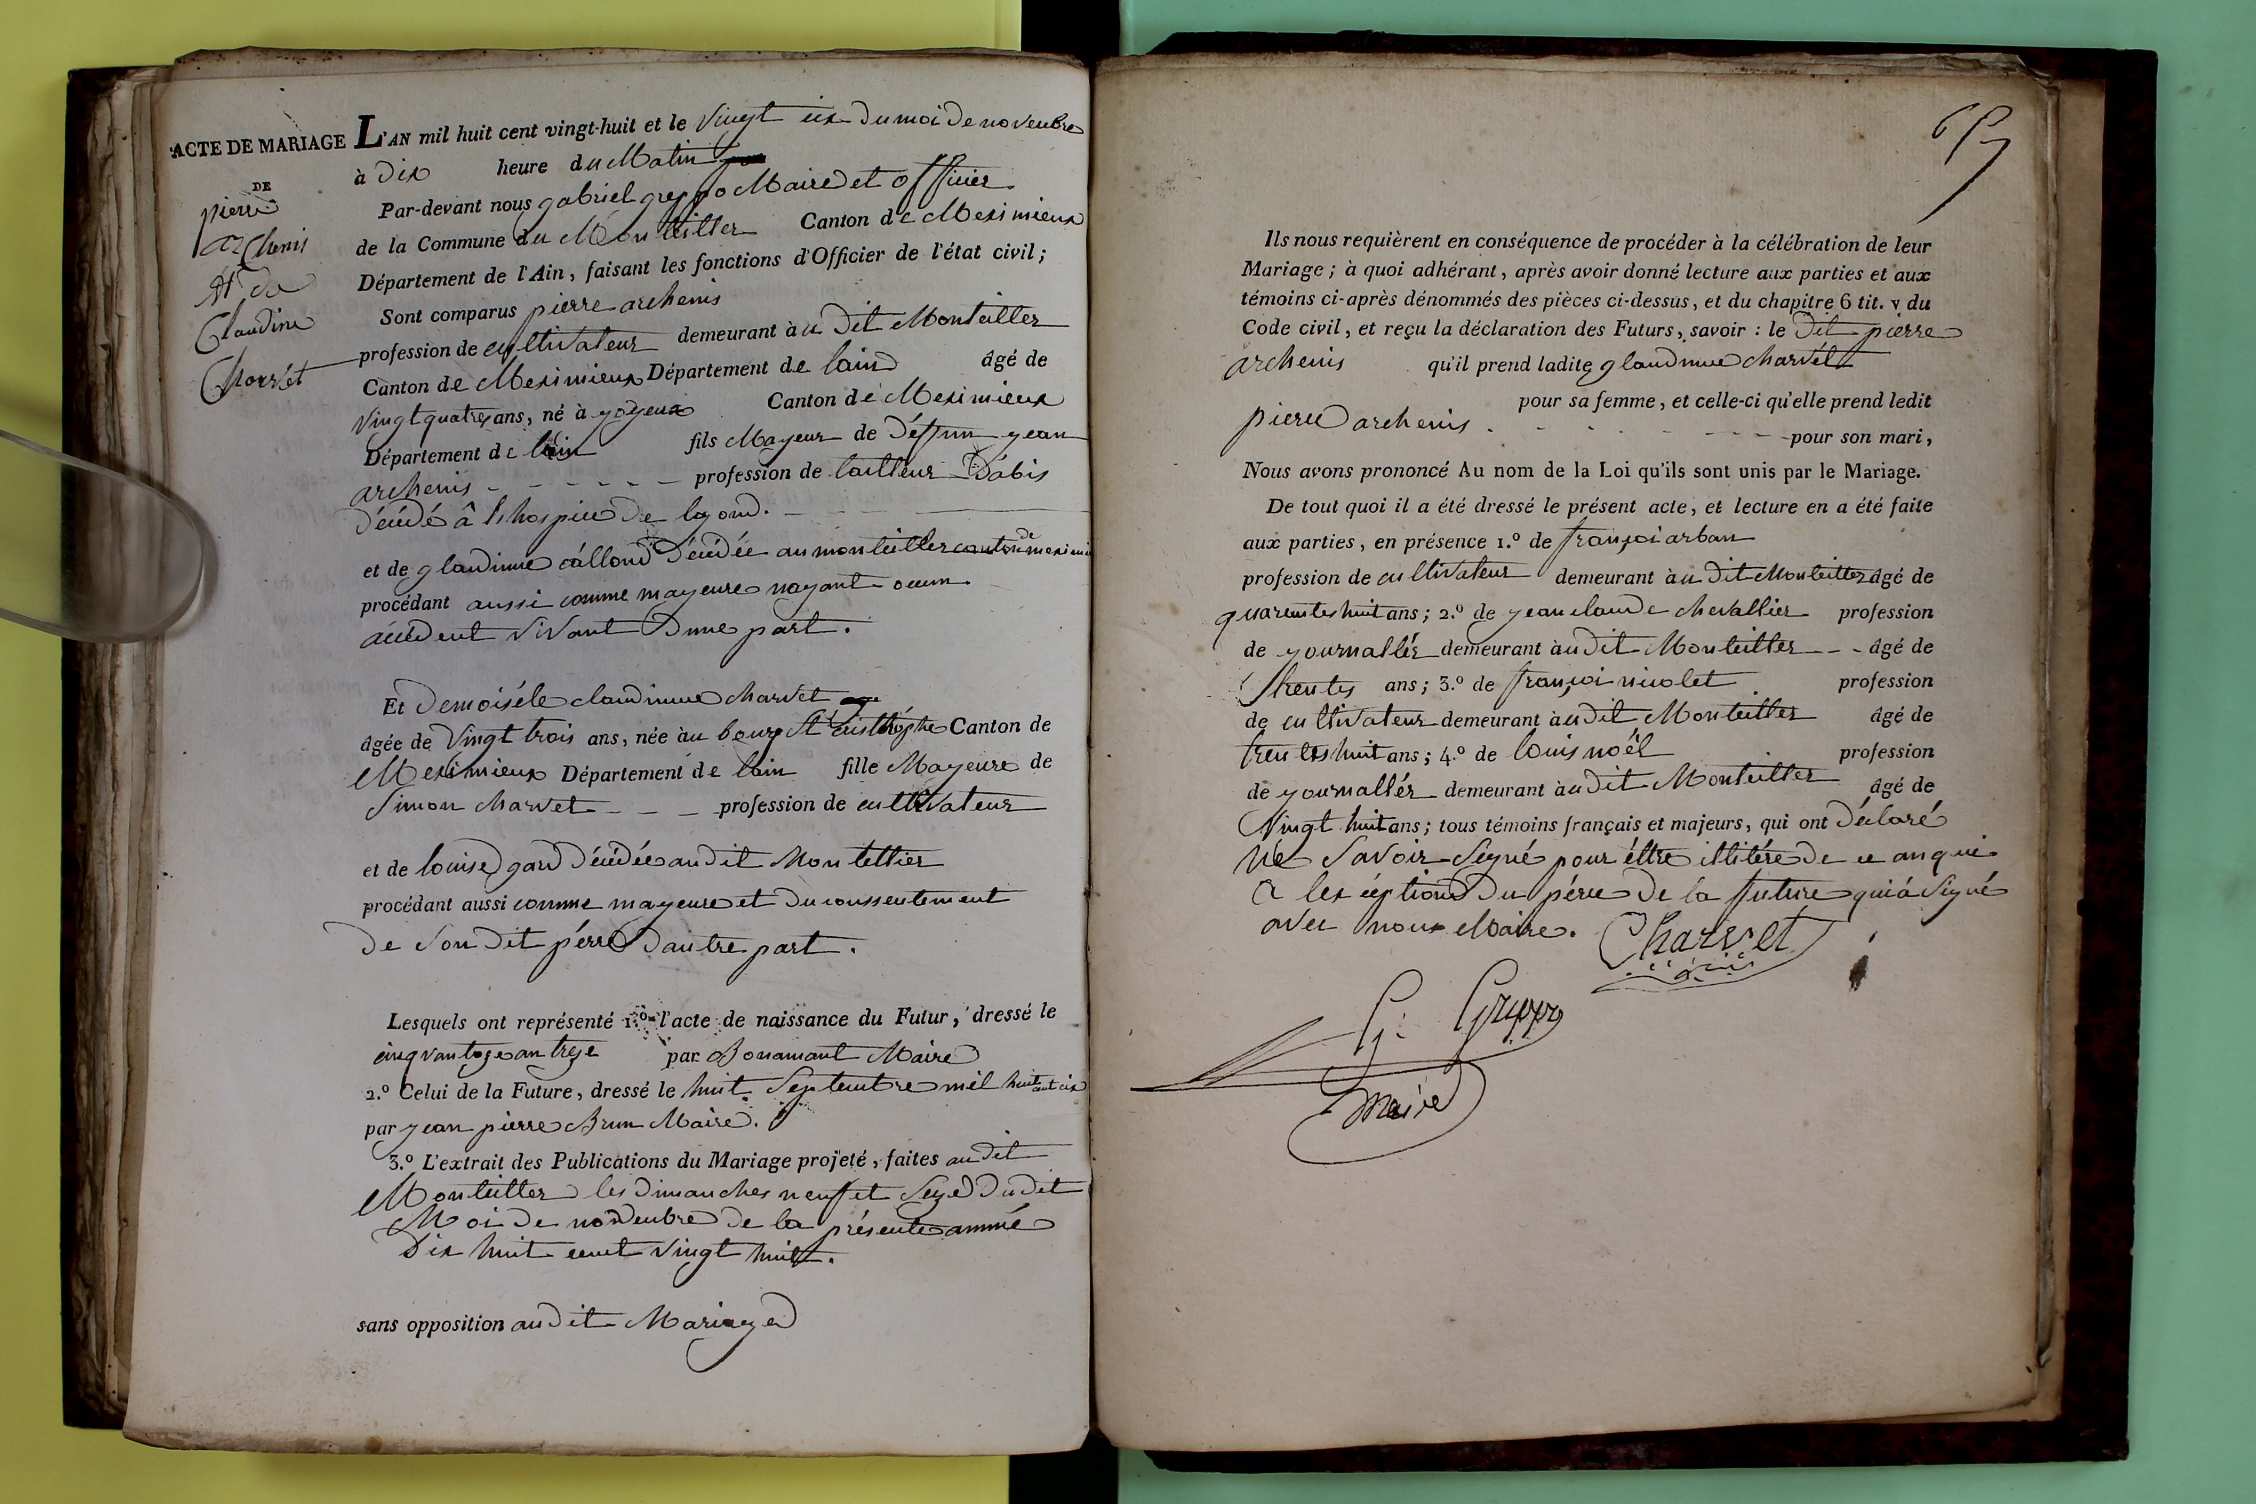 ACTE DE MARIAGE
DE
pierre
archenis
Et de
Claudine
Charvet
L'AN mil huit cent vingt-huit et le vingt six du moi de novenbre
à dix heure du Matin
Par-devant nous gabriel greppo Maire et officier
de la Commune du Monteiller Canton de Meximieux
Département de l'Ain, faisant les fonctions d'Officier de l'état civil;
Sont comparus pierre archenis
profession de cultivateur demeurant à u dit Monteiller
Canton de Meximieux Département de lain âgé de
vingt quatre ans, né à yoyeux Canton de Meximieux
Département de lain fils Mayeur de deffun yean
archenis profession de tailleur Dabis
décédé â lhospice de lyond.
et de glaudinne callond décédée au monteiller canton de meximieu
procédant aussi comme mayeure nayant ocun
accédent vivant dune part.
Et Demoiséle claudinne charvet
âgée de vingt trois ans, née àu bourg St cristhophe Canton de
Meximieux Département de lain fille Mayeure de
Simon charvet profession de cultivateur
et de louise gard décédée au dit Montellier
procédant aussi comme mayeure et du conssentement
de son dit pérre dautre part.
Lesquels ont représenté 1.º l'acte de naissance du Futur, dressé le
cinq vantose an treze par Bonamant Maire
2.º Celui de la Future, dressé le huit Septenbre mil huit cent six
par yean pierre Brun Maire.
3.º L'extrait des Publications du Mariage projeté, faites au dit
Monteiller les dimanches neuf et Seze dudit
Moi de novenbre de la présente année
dix huit cent vingt huit.
sans opposition audit Mariage
Ils nous requièrent en conséquence de procéder à la célébration de leur
Mariage; à quoi adhérant, après avoir donné lecture aux parties et aux
témoins ci-après dénommés des pièces ci-dessus, et du chapitre 6 tit. v du
Code civil, et reçu la déclaration des Futurs, savoir : le dit pierre
archenis qu'il prend ladite glaudinne charvét
pour sa femme, et celle-ci qu'elle prend ledit
pierre archenis pour son mari,
Nous avons prononcé Au nom de la Loi qu'ils sont unis par le Mariage.
De tout quoi il a été dressé le présent acte, et lecture en a été faite
aux parties, en présence 1.º de françoi arban
profession de cultivateur demeurant àu dit Monteiller âgé de
quarentes huit ans; 2.º de yean claude chevallier profession
de yournallér demeurant àu dit Monteiller âgé de
trentes ans; 3.º de françoi nicolet profession
de cultivateur demeurant àu dit Monteiller âgé de
trentes huit ans; 4.º de louis noél profession
de yournallér demeurant àu dit Monteiller âgé de
Vingt huit ans; tous témoins français et majeurs, qui ont déclaré
ne Savoir Segné pour éttre illitére de ce anquis
a lex céption du pére de la future qui à Signé
avec nous Maire. Charvet
G: Greppo
maire